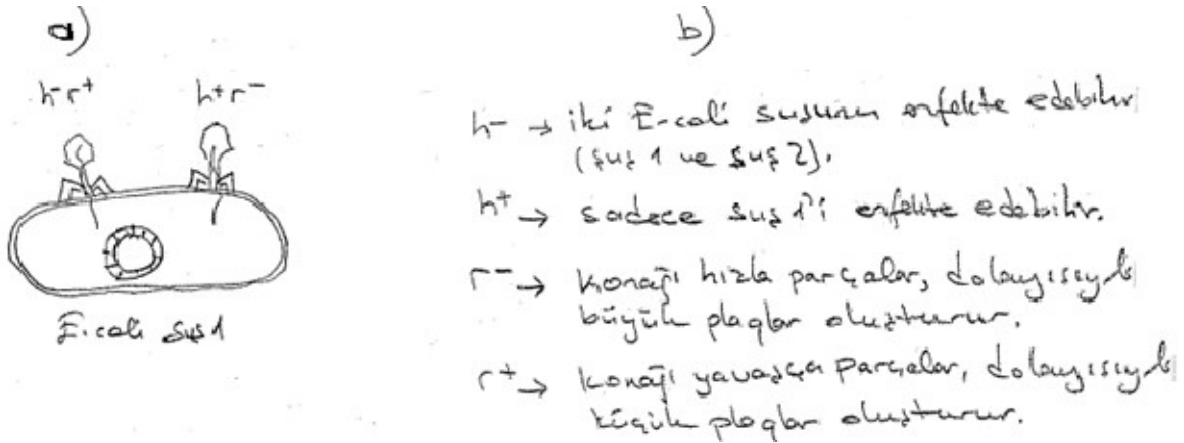 a)
h⁻r⁺ h⁺r⁻
E.coli suş 1
b)
h⁻ → iki E-coli suşunu enfekte edebilir
(suş 1 ve suş 2).
h⁺ → sadece suş 1'i enfekte edebilir.
r⁻ → konağı hızla parçalar, dolayısıyla
büyük plaqlar oluşturur.
r⁺ → konağı yavaşça parçalar, dolayısıyla
küçük plaqlar oluşturur.